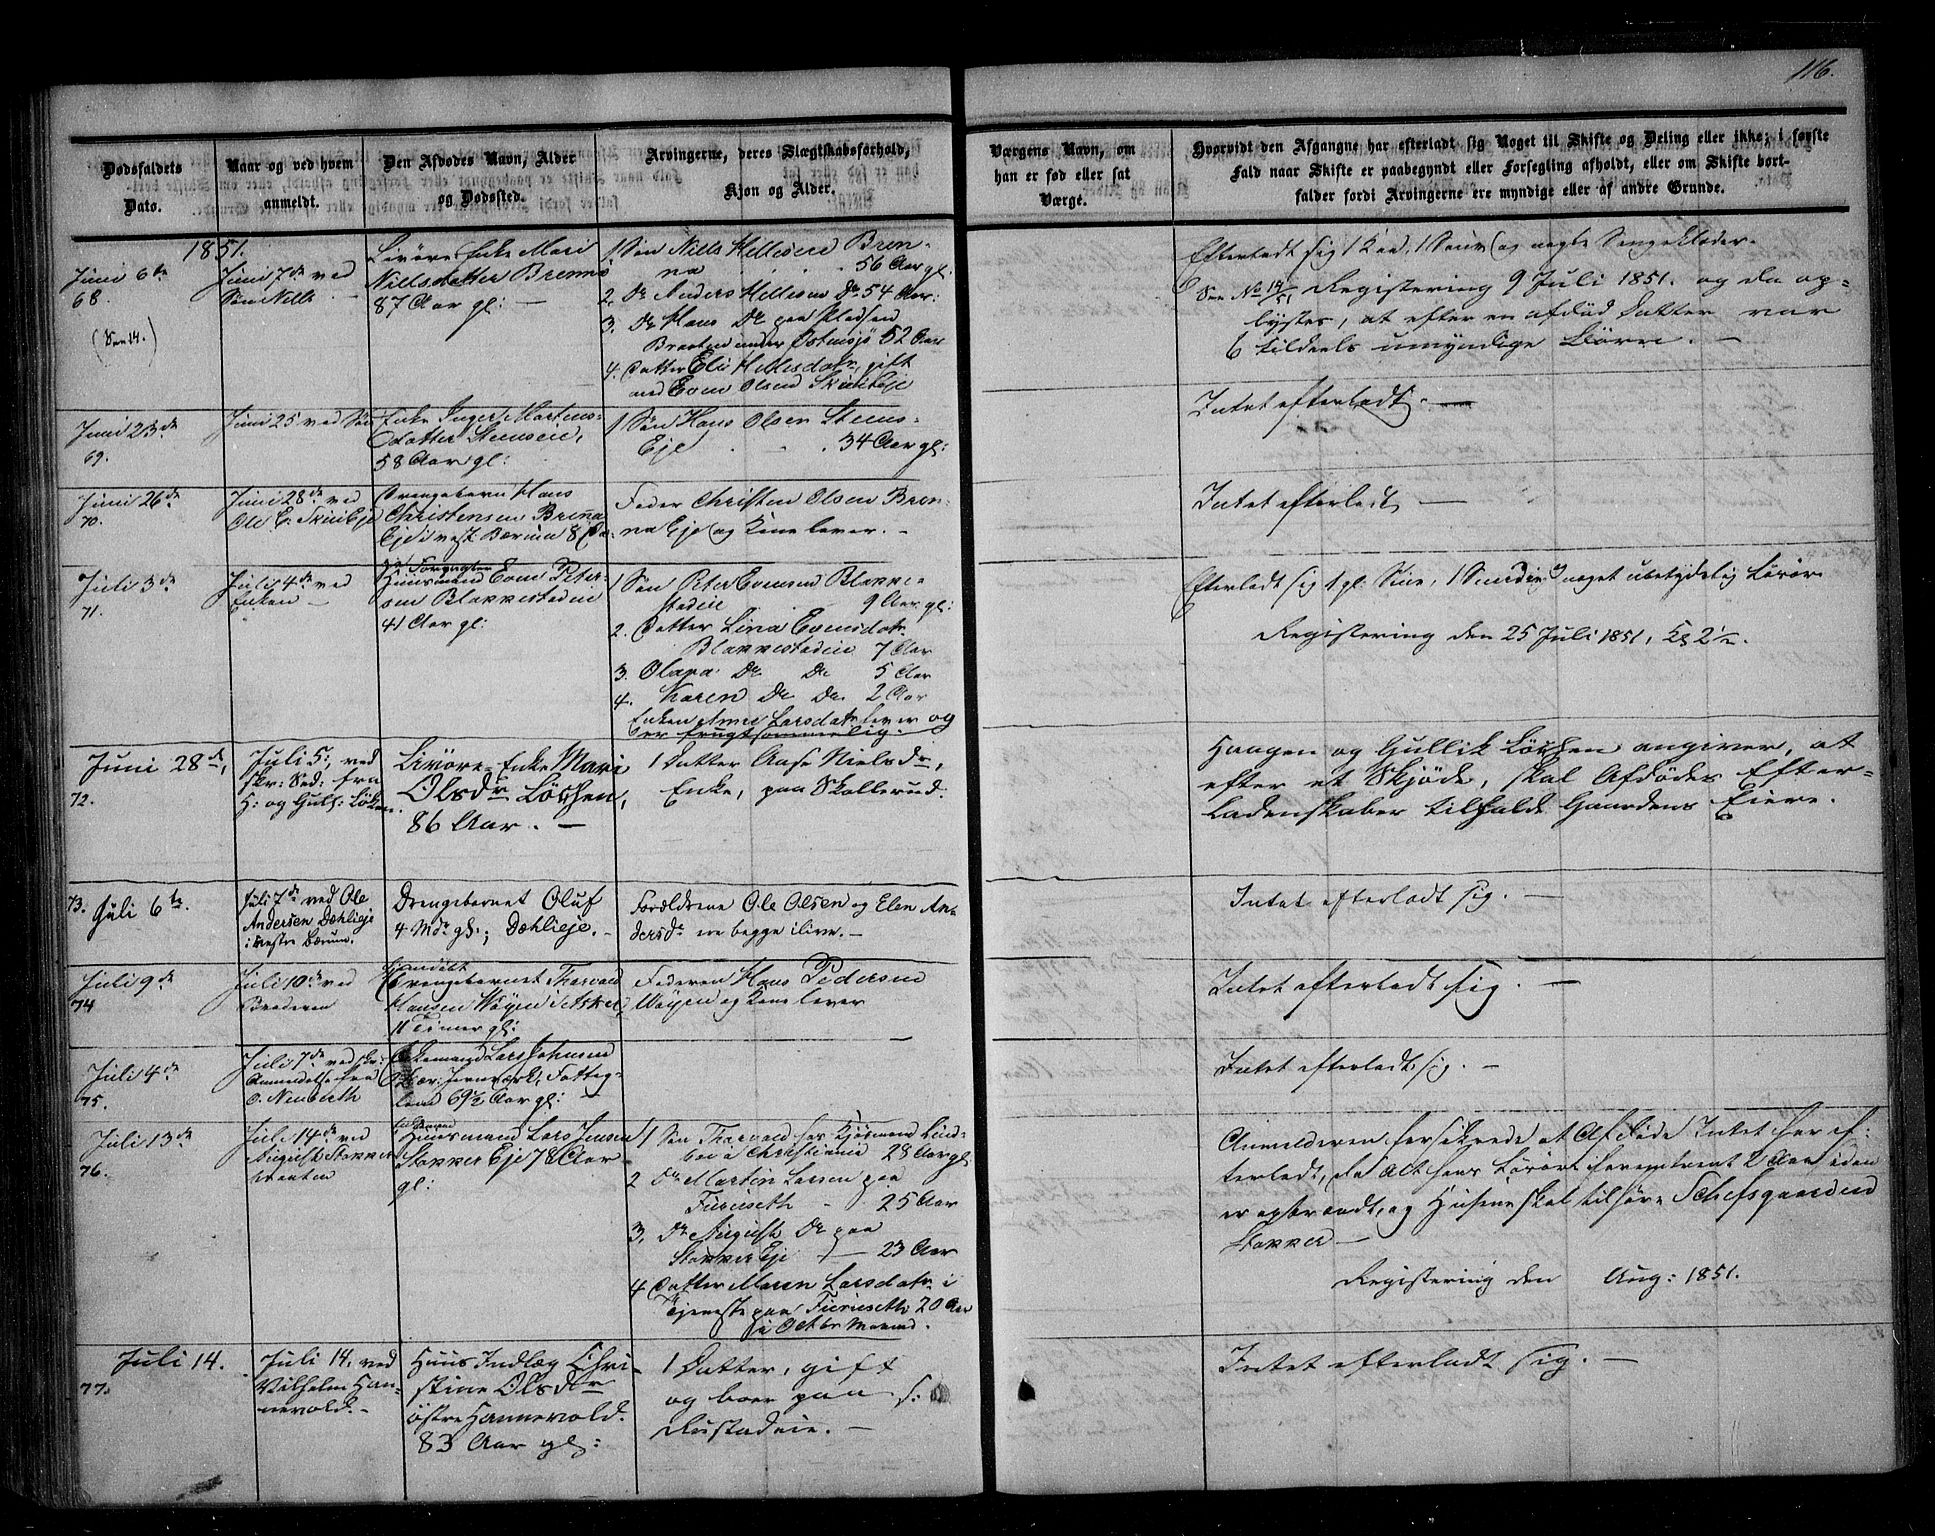 116.
Dødsfaldets
Dato.
Naar og ved hvem
anmeldt.
Den Afdødes Navn, Alder
og Dødssted.
Arvingerne, deres Slægtskabsforhold,
Kjøn og Alder.
Værgens Navn, om
han er fød eller sat
Værge.
Hvorvidt den Afgangne har efterladt sig Noget til Skifte og Deling eller ikke; i første
Fald naar Skifte er paabegyndt eller Forsegling afholdt, eller om Skifte bort-
falder fordi Arvingerne ere myndige eller af andre Grunde.
1851.
Juni 6te
68
(See 14.)
Juni 7de ved
Søn Nils
Livøre Enke Mari
Nilsdatter Brenna
87 Aar gl: —
1 Søn Nils Hellesen Bren-
na 56 Aar gl.
2. Do Anders Hellesen Do 54 Aar:
3. Do Hans Do paa Pladsen
Braaten under Østensjø 52 Aar
4. Datter Eli Hellesdatr, gift
med Even Olsen Skuibeje
Efterladt sig 1 Koe, 1 Souv og nogle Sengeklæder.
See No 14/51 Registering 9 Juli 1851. og da op-
lystes, at efter en afdød Datter var
6 tildeels umyndige Børn. —
Juni 23de
69.
Juni 25 ved Søn
Enke Inger Martens-
Datter Steenseie,
58 Aar gl:
1 Søn Hans Olsen Steens-
Eje 34 Aar gl:
Intet efterladt. —
Juni 26de
70.
Juni 28de ved
Ole E. Skuibeje
Drengebarn Hans
Christensen Brena
Eje i vest Bærum 8 Da.
Fader Christen Olsen Bren-
na Eje og Kone lever. —
Intet efterladt —
Juli 3de
71.
Juli 4de ved
Enken —
Huusmand Even Peter-
sen Blakkestadeie
41 Aar gl:
1 Søn Peter Evensen Blakke-
stadeie 9 Aar gl:
2. Datter Lina Evensdatr
Blakkestadeie 7 Aar
3. Olava Do Do 5 Aar
4. Karen Do Do 2 Aar
Enken Anne Larsdatr lever og
er frugtsommelig. —
Efterladt sig 1 gl. Kue, 1 Smedie, noget ubetydelig Løsøre
Registering den 25 Juli 1851, Kl 2½.
Juni 28de,
72.
Juli 5: ved
skr: Sed: fra
H: og Gulf: Løken.
Livøre-Enke Mari
Olsdr Løchen,
86 Aar. —
1 Datter Aase Nielsdr,
Enke, paa Skollerud.
Haagen og Gullik Løchen angiver, at
efter et Skjøde, skal Afdødes Efter-
ladenskaber tilfalde Gaardens Eiere.
73. Juli 6te.
Juli 7de ved Ole
Andersen Dæhlieje
i vestre Bærum.
Drengebarnet Oluf
4 Mdr gl.; Dæhlieje. —
Forældrene Ole Olsen og Elen An-
dersdr ere begge ilive. —
Intet efterladt sig. —
Juli 9de
74
Juli 10de ved
Broderen
Drengebarnet Thorvald
Hansen Wøyen i Asker,
11 Timer gl:
Faderen Hans Pedersen
Wøyen og Kone lever
Intet efterladt sig. —
Juli 4de
75.
Juli 7de ved skr:
Anmeldelse fra
O. Neuberth
Enkemand Lars Johnsen
Bær: Jernværk, Fattig-
lem 69½ Aar gl:
Intet efterladt sig. —
Juli 13de
76.
Juli 14de ved
August Stokker
Braaten
Huusmand Lars Jensen
Stokker Eje 78 Aar
gl:
1 Søn Thorvald hos Kjøbmand Lind-
boe i Christiania 28 Aar gl
2 Do Martin Larsen paa
Furuseth 25 Aar
3. Do August Do paa
Stokker Eje — 23 Aar
4 Datter Maren Larsdatr i
Tjeneste paa Furuseth 20 Aar
i Octbr Maaned.
Anmelderen forsikrede at Afdøde Intet har ef-
terladt, da Alt hans Løsøre foromtrent 2 Aar siden
er opbrændt, og Husene skal tilhøre Schefsgaarden
Stokker —
Registering den Aug: 1851.
Juli 14.
77.
Juli 14. ved
Vilhelm Han-
nevold. —
Huus Indlæg Chri-
stine Olsdr
østre Hannevold.
83 Aar gl:
1 Datter, gift
og boer paa
Rustadeie. —
Intet efterladt sig. —